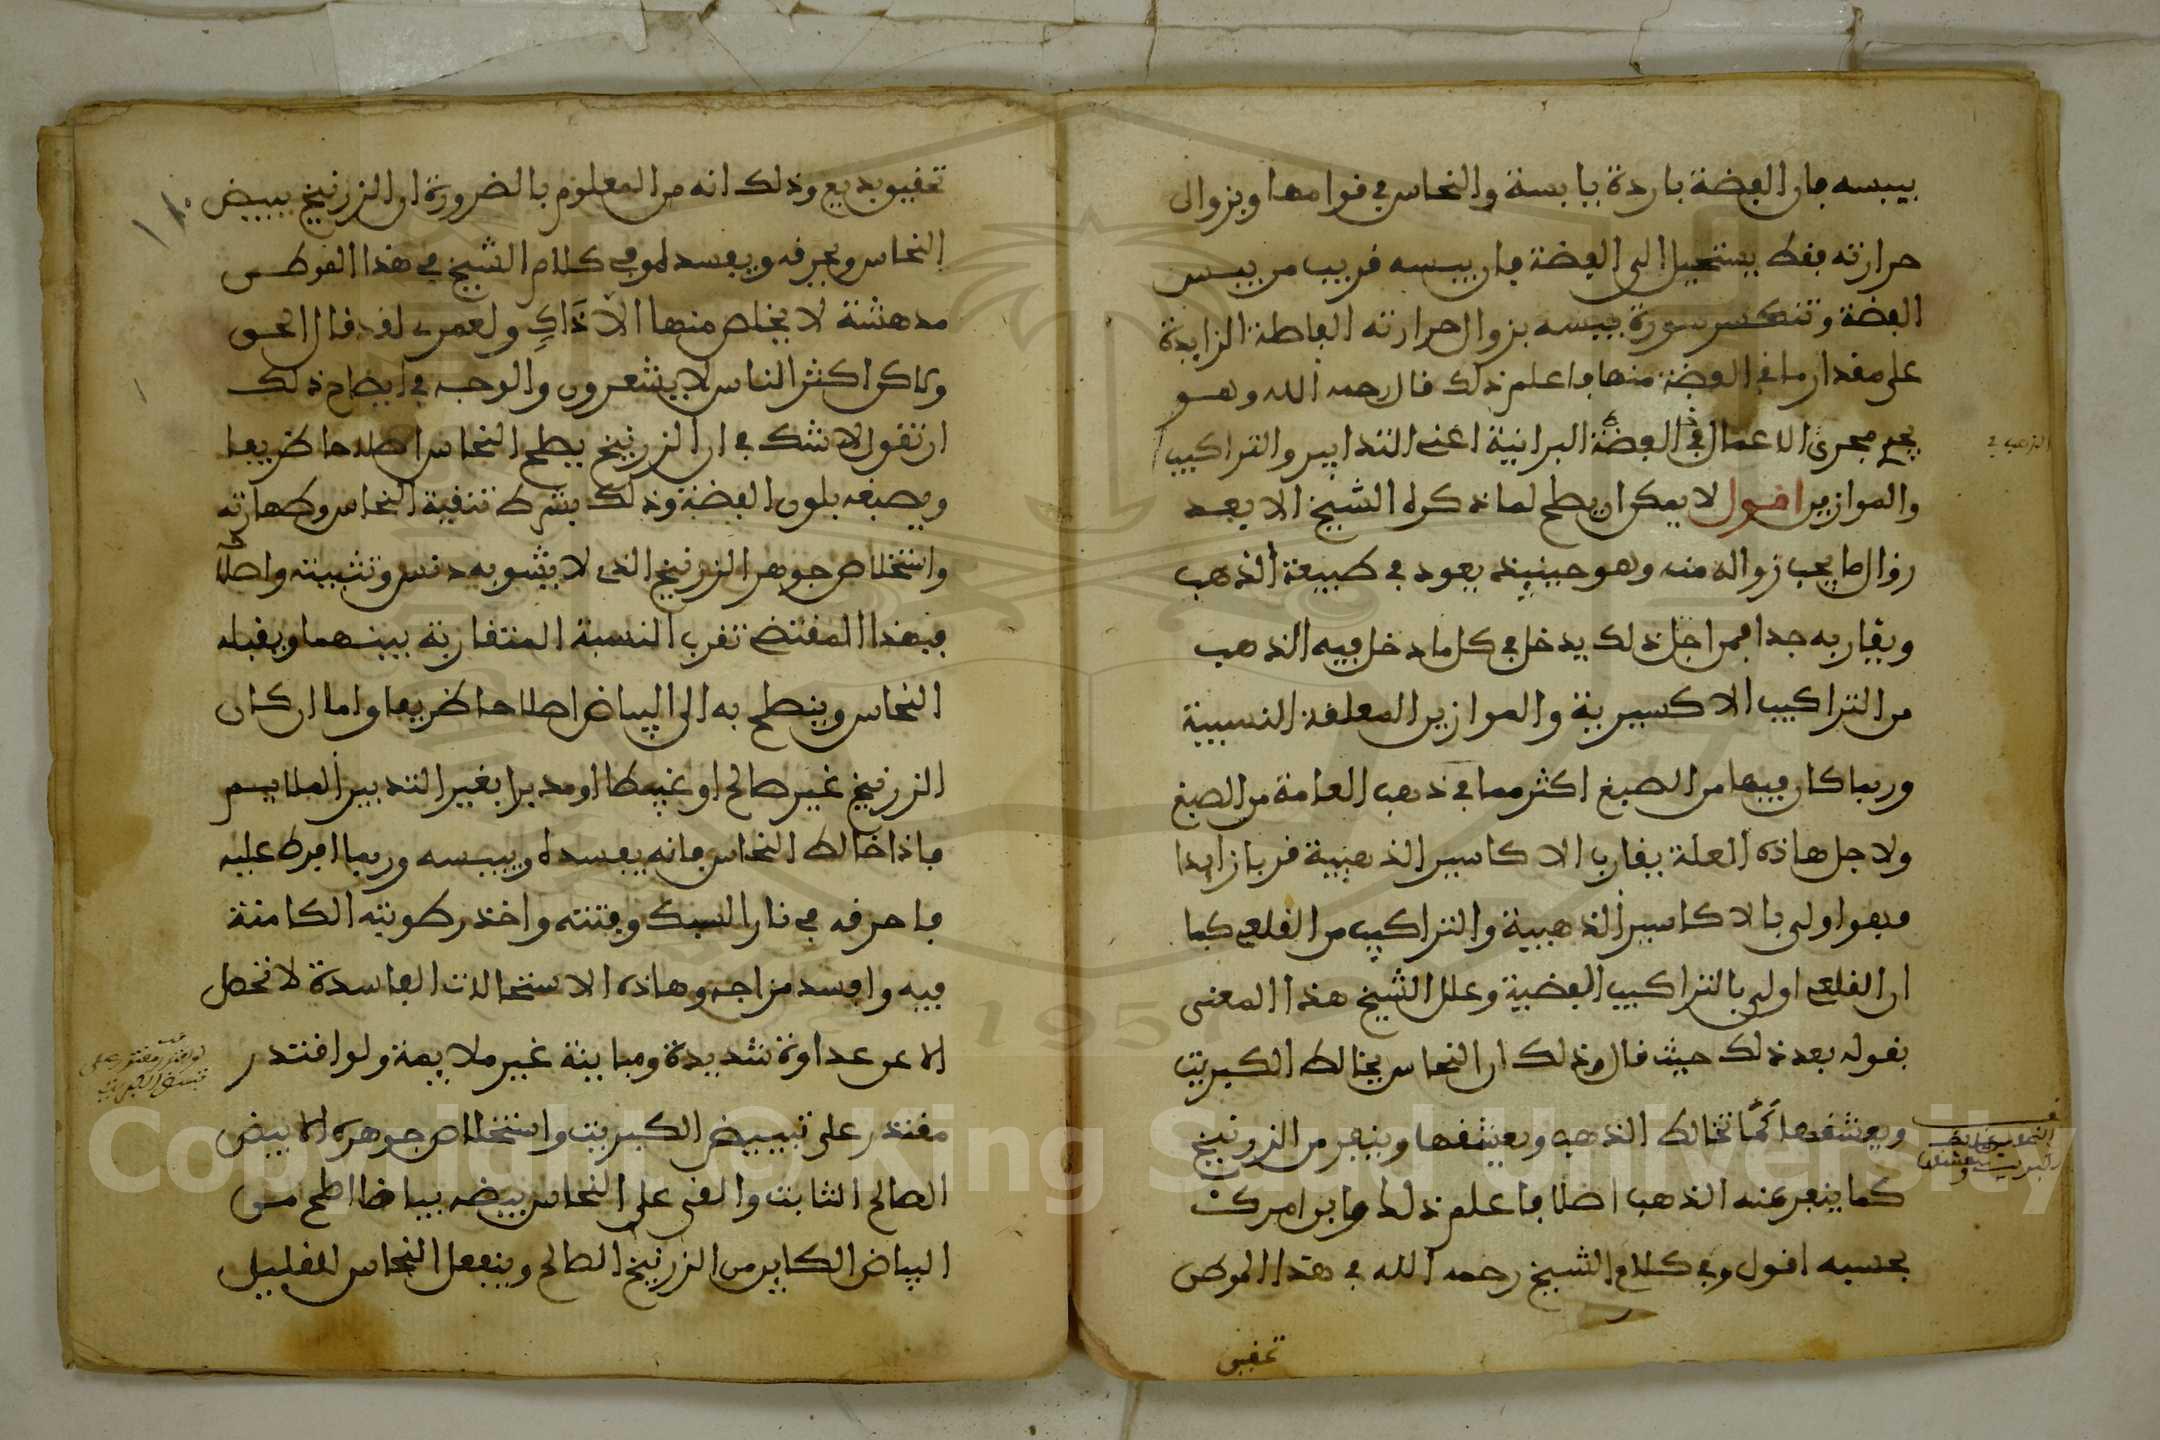 بيبسه فان الفضة باردة يابسة والنحاس في قوامها وبزوال
حرارته فقط يستحيل الى الفضة فان يبسه قريب من يبس
الفضة وتنكسر سورة يبسه بزوال حرارته الفاطة الزايدة
على مقدار ما في الفضة منها فاعلم ذلك قال رحمه الله وهو
يجري مجرى الاعمال في الفضة البرانية اعني التدابير والتراكيب
والموازين اقول لا يمكن ان يصلح لما ذكره الشيخ الا بعد
زوال ما يجب زواله منه وهو حينيذ يعود في طبيعة الذهب
ويقاربه جدا فمن اجل ذلك يدخل في كل ما دخل فيه الذهب
من التراكيب الاكسيرية والموازين المعلقة النسبية
وربما كان فيها من الصبغ اكثر مما في ذهب العامة من الصبغ
ولاجل هاذه العلة يقارب الاكاسير الذهبية قربا زايدا
فهو اولى بالاكاسير الذهبية والتراكيب من القلعي كما
ان القلعي اولى بالتراكيب الفضية وعلل الشيخ هذا المعنى
بقوله بعد ذلك حيث قال وذلك ان النحاس يخالط الكبريت
ويعشقها كما تخالط الذهب ويعشقها وينفر من الزرنيخ
كما ينفر عنه الذهب اصلا فاعلم ذلك وابن امرك
بحسبه اقول وفي كلام الشيخ رحمه الله في هذا الموطن
تحقيق
تحقيق بديع وذلك انه من المعلوم بالضرورة ان الزرنيخ يبيض
النحاس ويحرقه ويفسده وفي كلام الشيخ في هذا الموطن
مدهشة لا يخلص منها الا ذاك ولعمري لقد قال الحق
ولاكن اكثر الناس لا يشعرون والوجه في ايضاح ذلك
ان تقول لا شك في ان الزرنيخ يصلح النحاس اصلاحا ظريفا
ويصبغه بلون الفضة وذلك بشرط تنقية النحاس وطهارته
واستخلاص جوهر الزرنيخ الذي لا يشوبه دنس وتثبيته واصلا
فبهذا المقتضى تقرب النسبة المتقاربة بينهما ويقبله
النحاس وينصلح به الى البياض اصلاحا ظريفا واما ان كان
الزرنيخ غير صالح او غبيطا او مدبرا بغير التدبير الملايم
فاذا خالط النحاس فانه يفسده وييبسه وربما افرط عليه
فاحرقه في نار السبك وفتته واخذ رطوبته الكامنة
فيه وافسد مزاجه وهاذه الاستحالات الفاسدة لا تحصل
الا عن عداوة شديدة ومباينة غير ملايمة ولو اقتدر
مقتدر على تبييض الكبريت واستخلاص جوهره الابيض
الصالح الثابت والقي على النحاس بيضه بياضا اصلح من
البياض الكاين من الزرنيخ الصالح وينفعل النحاس للقليل